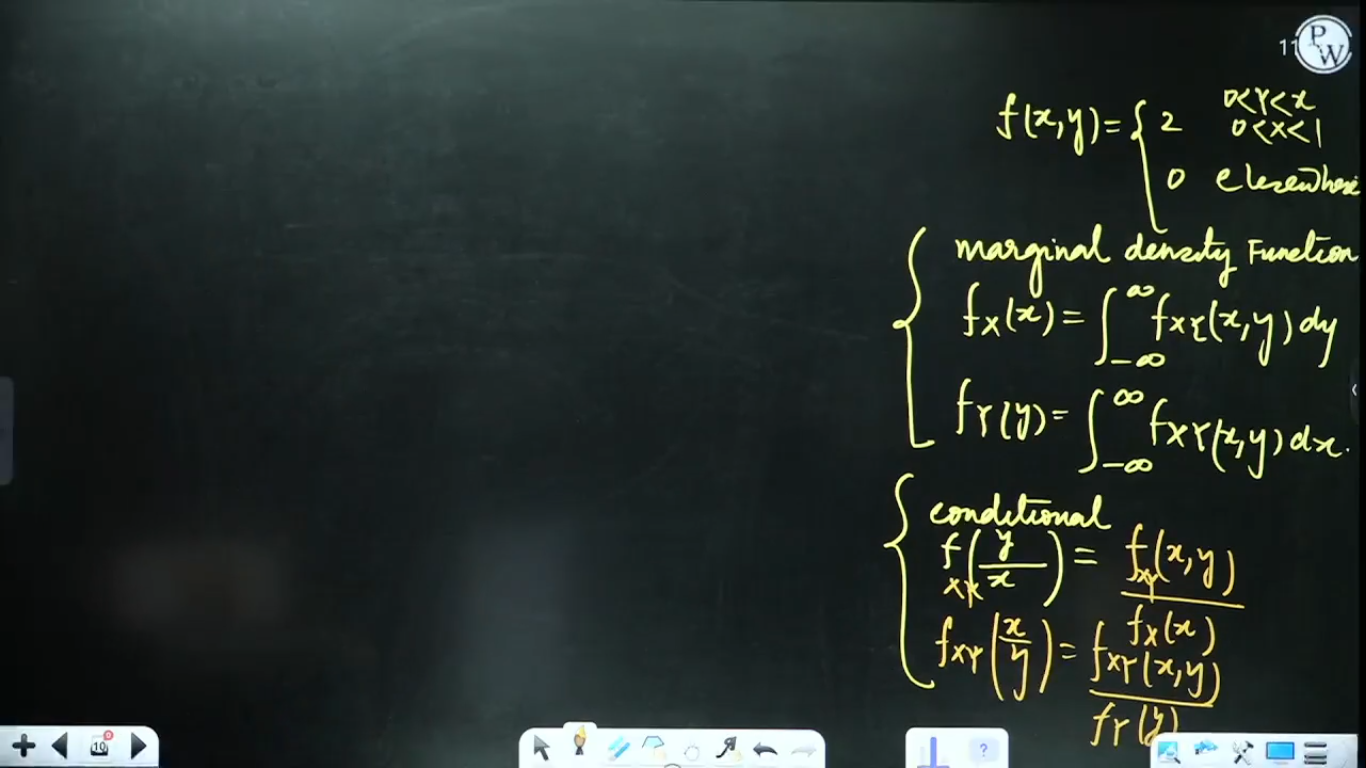 11
PW
f(x,y) = { 2 0<Y<x
0<x<1
0 elsewhere
marginal density Function
f_X(x) = ∫_{-∞}^{∞} f_{XY}(x,y) dy
f_Y(y) = ∫_{-∞}^{∞} f_{XY}(x,y) dx.
conditional
f_{XY}(y/x) = f_{XY}(x,y) / f_X(x)
f_{XY}(x/y) = f_{XY}(x,y) / f_Y(y)
10
?